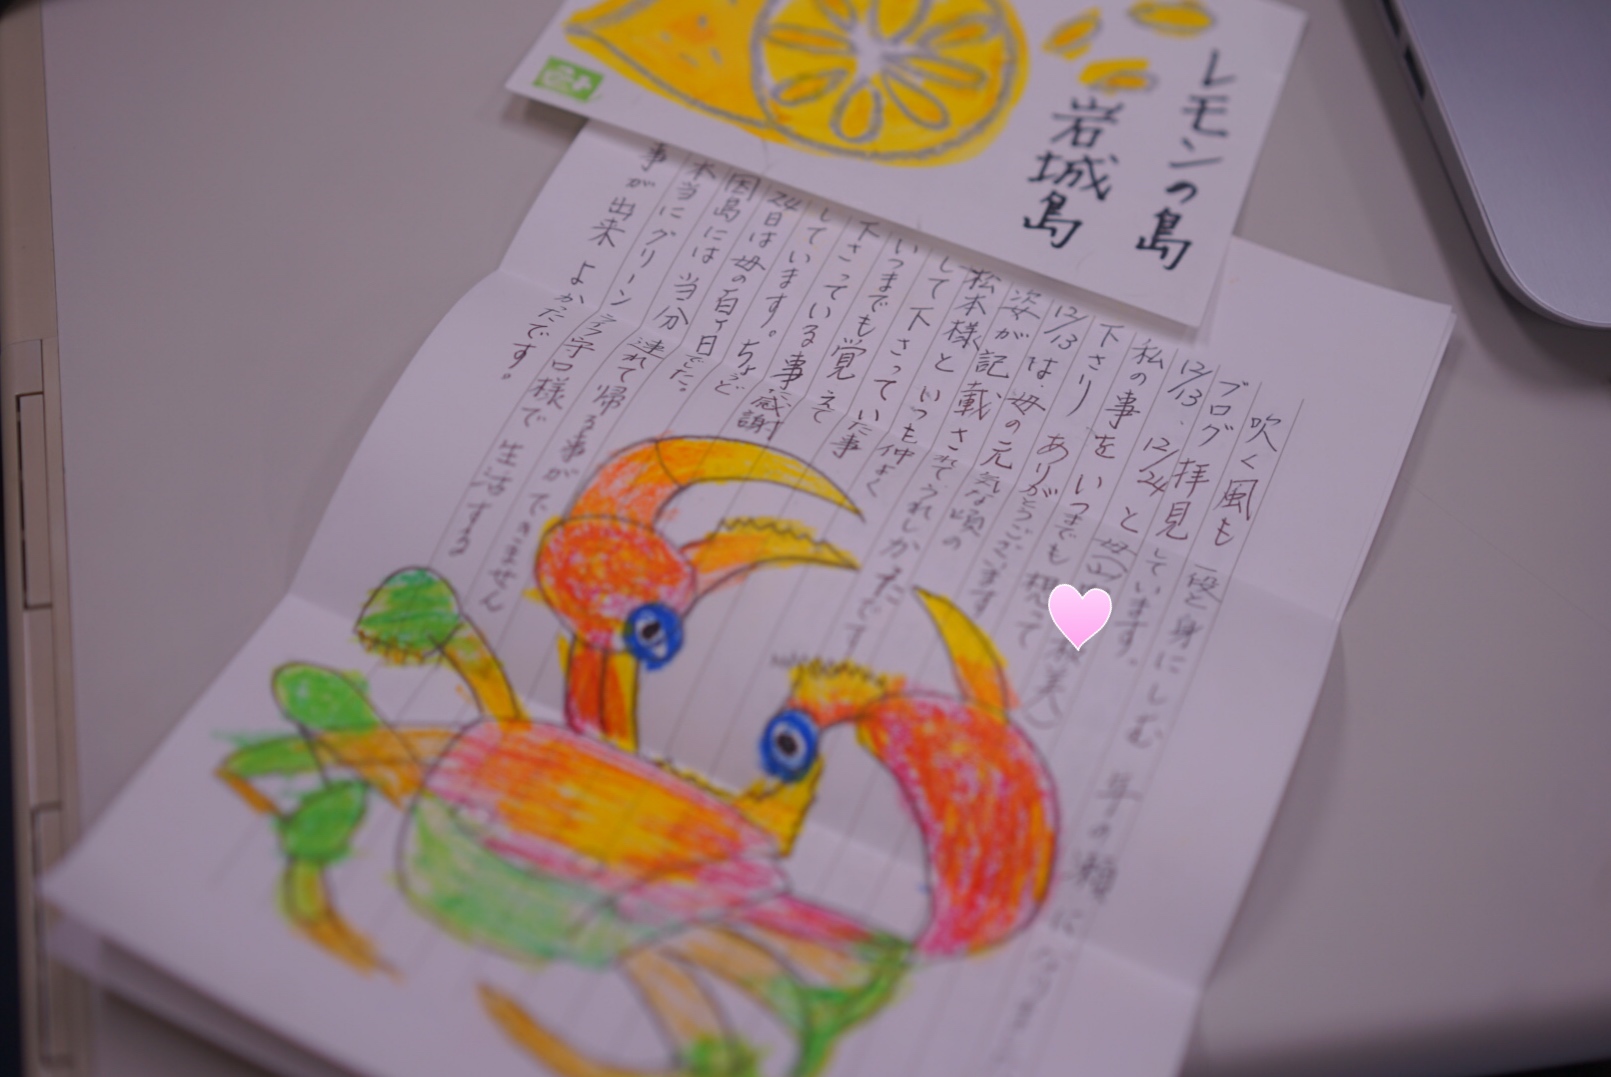 レモンの島
岩城島
吹く風も一段と身にしむ年の瀬になりま
ブログ拝見しています。
12/13、12/24と母
私の事をいつまでも想って
下さりありがとうございます
12/13は、母の元気な頃の
姿が記載されてうれしかったです
松本様といつも仲よく
して下さっていた事
いつまでも覚えて
下さっている事感謝
しています。ちょうど
24日は母の百ヶ日でした。
因島には当分連れて帰る事ができません
本当にグリーン守口様で生活する
事が出来よかったです。